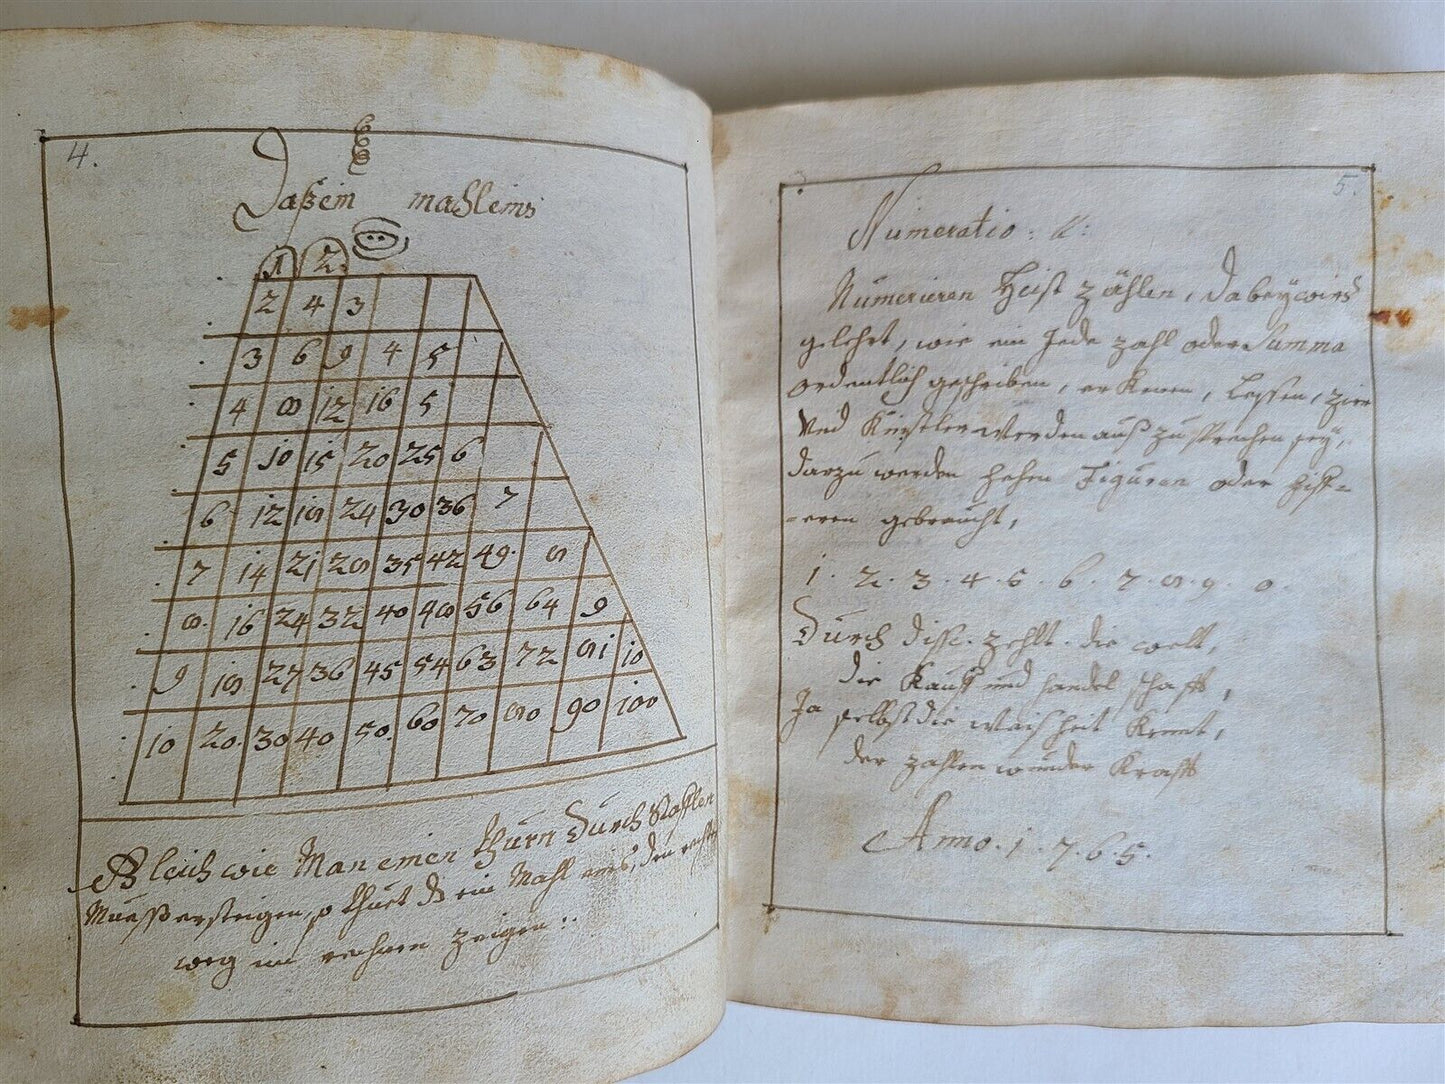 4.
Daß ein mahl eins
1 2
2 4 3
3 6 9 4 5
4 8 12 16 5
5 10 15 20 25 6
6 12 18 24 30 36 7
7 14 21 28 35 42 49. 8
8. 16 24 32 40 48 56 64 9
9 18 27 36 45 54 63 72 81 10
10 20. 30 40 50. 60 70 80 90 100
Gleich wie Man einen thurn Durch Staffлen
Mueß ersteigen, so thuet ds ein Mahl eins, den rechten
weg im rechnen zeigen :
5.
Numeratio :
Numerieren Heist zählen, dabey wird
gelehrt, wie ein Jede zahl oder Summa
ordentlich geschriben, erkenen, Lessen,
Und Künstler werden auß zu sprechen sey,
darzu werden zehen Figuren oder Ziff-
-eren gebraucht,
1 . 2 . 3 . 4 . 5 . 6 . 7 . 8 . 9 . 0 .
Durch diss. zehlt . die welt,
die Kauff und handelschafft,
Ja selbst die Weisheit Kennt,
der zahlen wunder Krafft
Anno . 1 . 7 . 6 . 5 .